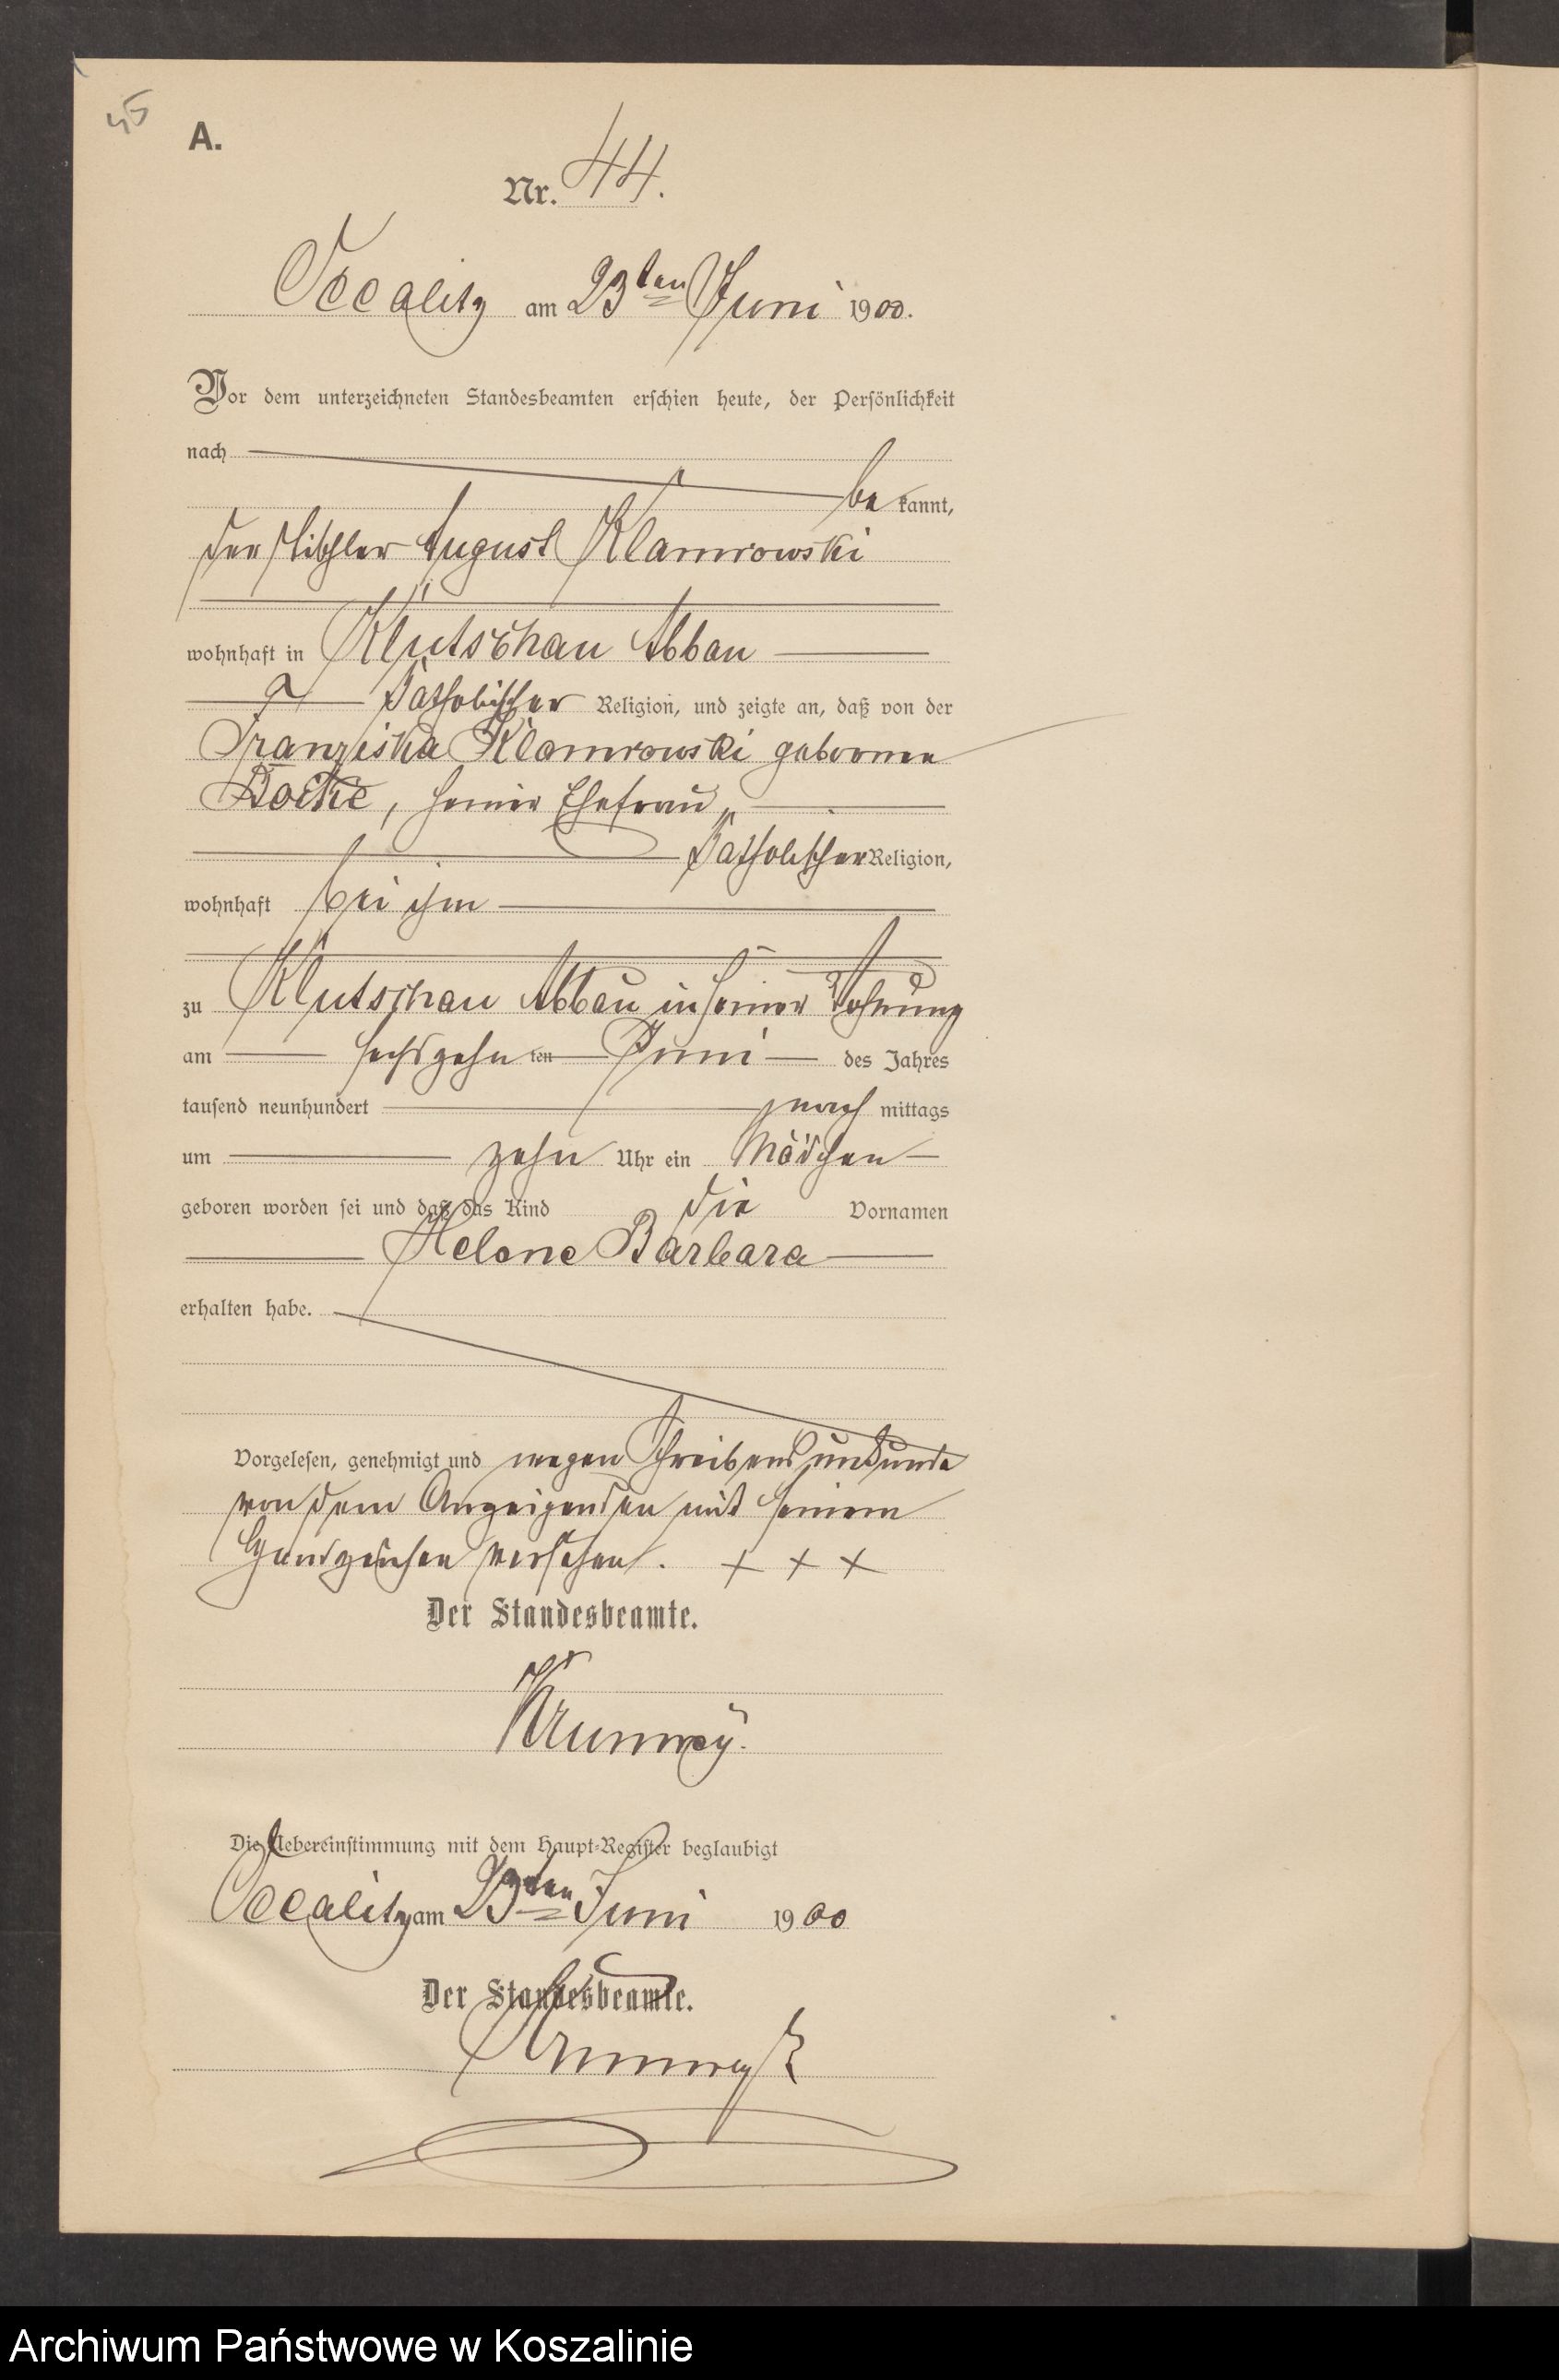 45
A.
Nr. 44.
Occalitz am 23ten Juni 1900.
Vor dem unterzeichneten Standesbeamten erschien heute, der Persönlichkeit
nach
be kannt,
der Tischler August Klamrowski
wohnhaft in Klutschau Abbau
katholischer Religion, und zeigte an, daß von der
Franziska Klamrowski geborenen
, seiner Ehefrau,
katholischer Religion,
wohnhaft bei ihm
zu Klutschau Abbau in seiner Wohnung
am sechszehn ten Juni des Jahres
tausend neunhundert nach mittags
um zehn Uhr ein Mädchen
geboren worden sei und daß das Kind die Vornamen
Helene Barbara
erhalten habe.
Vorgelesen, genehmigt und wegen Schreibensunkunde
von dem Anzeigenden mit seinem
Handzeichen versehen. + + +
Der Standesbeamte.
Die Uebereinstimmung mit dem Haupt-Register beglaubigt
Occalitz am 23ten Juni 1900
Der Standesbeamte.
Archiwum Państwowe w Koszalinie